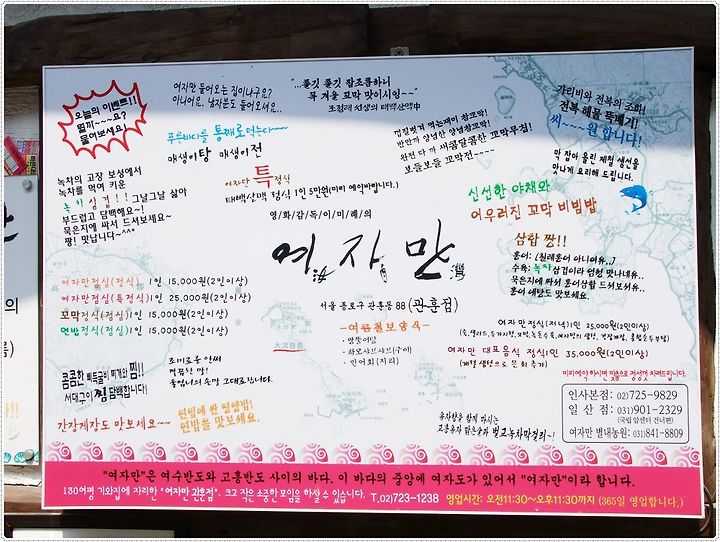 오늘의 이벤트!!
뭘까~~~요?
물어보세요!
여자만 들어오는 집이냐구요?
아니어요. 남자분도 들어오세요..
푸른바다를 통째로 먹는다~~~
매생이탕 매생이전
"...쫄깃 쫄깃 짭조름하니
똑 겨울 꼬막 맛이시엉~~"
조정래 선생의 태백산맥中
껍질벗겨 먹는재미 참꼬막!
반반까 양념한 양념참꼬막!
완전 다 까 새콤달콤한 꼬막무침!
보들보들 꼬막전~~~~
가리비와 전복의 조화!
전복 해물 뚝배기!
씨~~원 합니다!
막 잡아 올린 제철 생선을
맛나게 요리해 드립니다.
녹차의 고장 보성에서
녹차를 먹여 키운
녹차삼겹!! 그냥그냥 삶아
부드럽고 담백해요~!
묵은지에 싸서 드셔보세요~
짱! 맛납니다~^^*
여자만 특정식
태백산맥 정식 1인 5만원(미리 예약바랍니다.)
영/화/감/독/이/미/례/의
여자만
서울 종로구 관훈동 88 (관훈점)
신선한 야채와
어우러진 꼬막 비빔밥
삼합 짱!!
홍어: (칠레홍어 아니여유..)
수육: 녹차삼겹이라 엄청 맛나네유..
묵은지에 싸서 홍어삼합 드셔보셔유..
홍어 애탕도 맛보세요.
여자만점심(정식) 1인 15,000원(2인이상)
여자만점심(특정식) 1인 25,000원(2인이상)
꼬막정식(점심) 1인 15,000원(2인이상)
연밥정식(점심) 1인 15,000원(2인이상)
-여름철보양식-
민어회(지리)
여자만정식(저녁) 1인 25,000원(2인이상)
여자만 대표음식 정식1인 35,000원(2인이상)
미리예약 하시면 믿음으로 정성껏 차려드립니다.
콤콤한 삐득굴비 찌개와 찜!!
서대구이 찜 담백합니다!
조미료를 안써
간장게장도 맛보세요~~
연잎에 싼 영양밥!
연밥을 맛보세요.
유자향을 함께 마시는
고흥유자 맑은술과 벌교녹차막걸리~!
인사본점: 02)725-9829
일 산 점: 031)901-2329
(국립암센터 건너편)
여자만 별내농원: 031)841-8809
"여자만"은 여수반도와 고흥반도 사이의 바다. 이 바다의 중앙에 여자도가 있어서 "여자만"이라 합니다.
130여평 기와집에 자리한 "여자만 관훈점". 크고 작은 소중한 모임을 하실 수 있습니다. T.02)723-1238 영업시간: 오전11:30~오후11:30까지 (365일 영업합니다.)